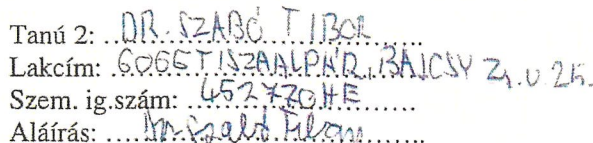 Tanú 2: DR. SZABÓ TIBOR
Lakcím: 6066 TISZAALPÁR, BAJCSY Zs. U 25.
Szem. ig.szám: 452770HE
Aláírás: Dr. Szabó Tibor